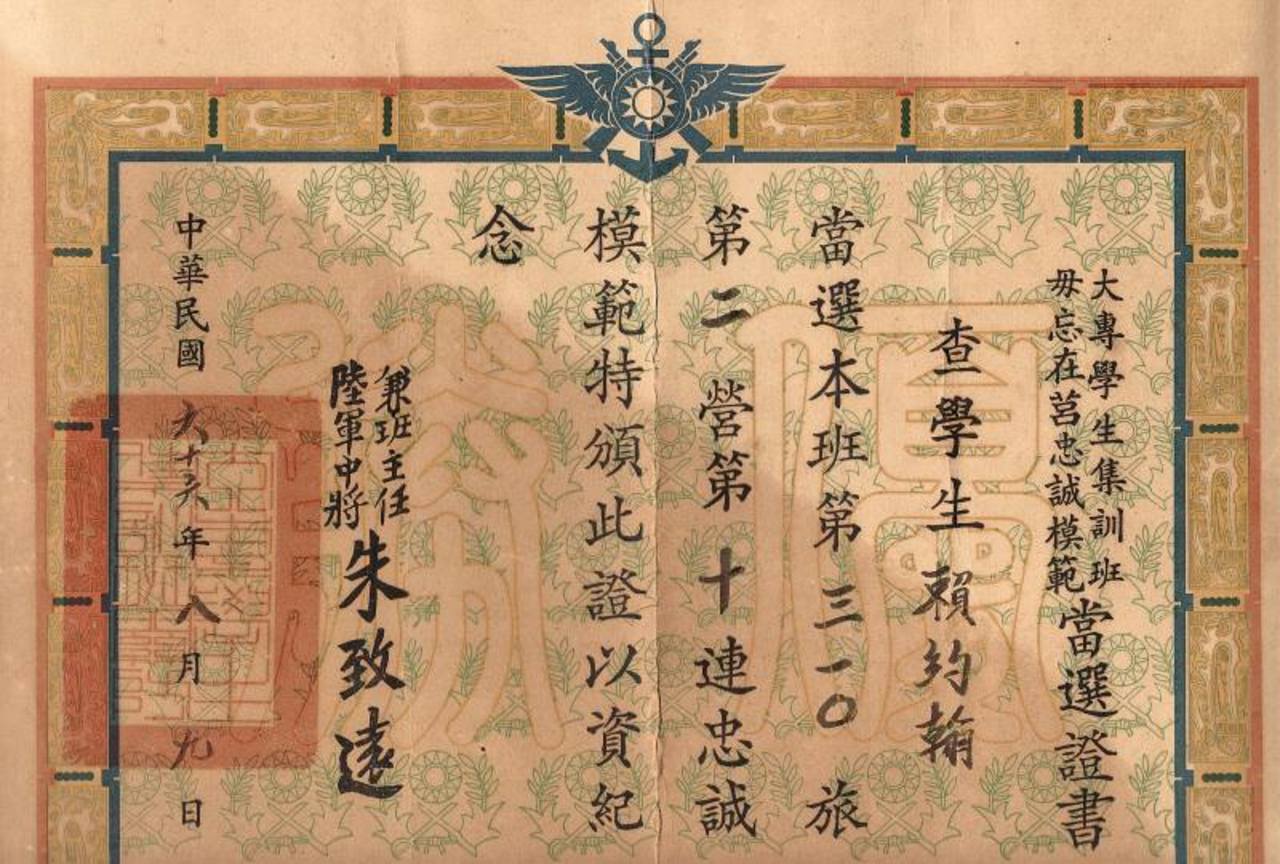 大專學生集訓班
毋忘在莒忠誠模範
當選證書
查學生賴約翰
當選本班第三一〇旅
第二營第十連忠誠
模範特頒此證以資紀
念
兼班主任
陸軍中將
朱致遠
中華民國六十六年八月九日